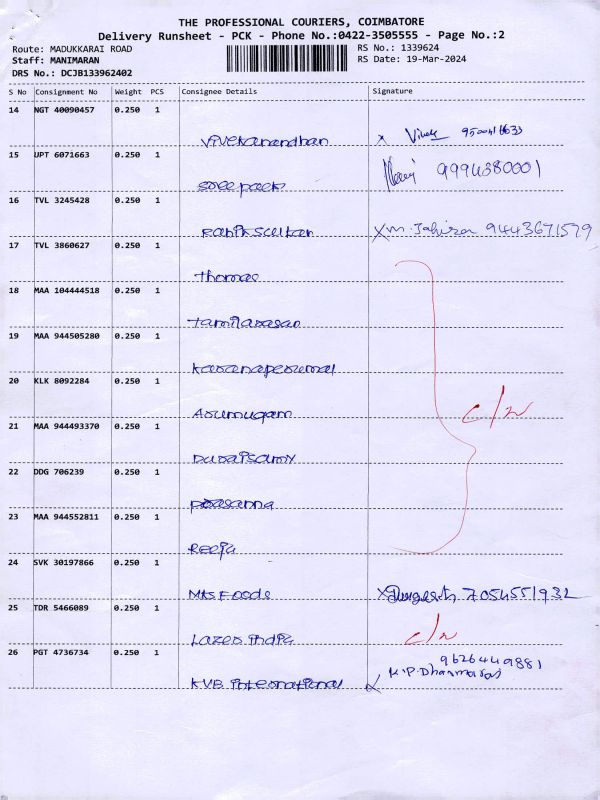 THE PROFESSIONAL COURIERS, COIMBATORE
Delivery Runsheet - PCK - Phone No.:0422-3505555 - Page No.:2
Route: MADUKKARAI ROAD RS No.: 1339624
Staff: MANIMARAN RS Date: 19-Mar-2024
DRS No.: DCJB133962402
S No Consignment No Weight PCS Consignee Details Signature
14 NGT 40090457 0.250 1
Vivekanandhan x Vivek
15 UPT 6071663 0.250 1
Sree pack 9994380001
16 TVL 3245428 0.250 1
X M. 9443671579
17 TVL 3860627 0.250 1
Thomas
18 MAA 104444518 0.250 1
Tamilarasan
19 MAA 944505280 0.250 1
Karanaperumal
20 KLK 8092284 0.250 1
Arumugam c/r
21 MAA 944493370 0.250 1
Duraisamy
22 DDG 706239 0.250 1
Prasanna
23 MAA 944552811 0.250 1
Reeja
24 SVK 30197866 0.250 1
Mks Foods X 7054551932
25 TDR 5466089 0.250 1
Lazer India c/r
26 PGT 4736734 0.250 1 9626449881
KVB International K.P.Dhanmaraj